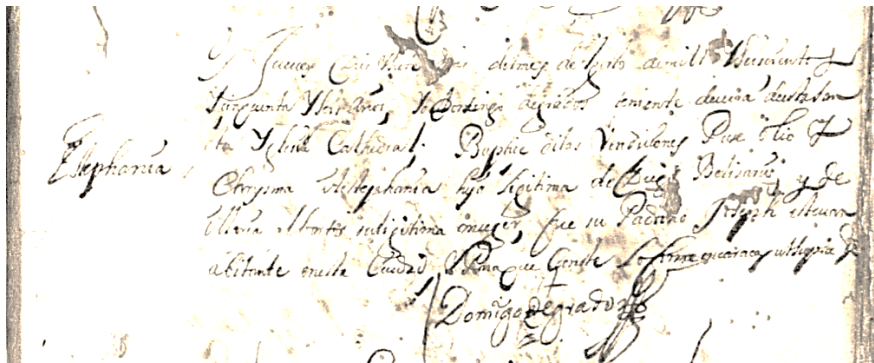 Jueves Veinte y tres del mes de Junio de mill y seiscientos y
sinquenta y seis años, yo Domingo de grados teniente de cura desta san
ta Yglesia Cathedral. Baptise dilas Vendisiones Puse olio y
Estephania
Chrysma a estephania hija legitima de Luis Belisario y de
Maria montes su legitima muger, fue su Padrino Joseph estevan
abitante en esta Ciudad y Para que Conste Lo firme en caracas ut supra
Domingo de grados